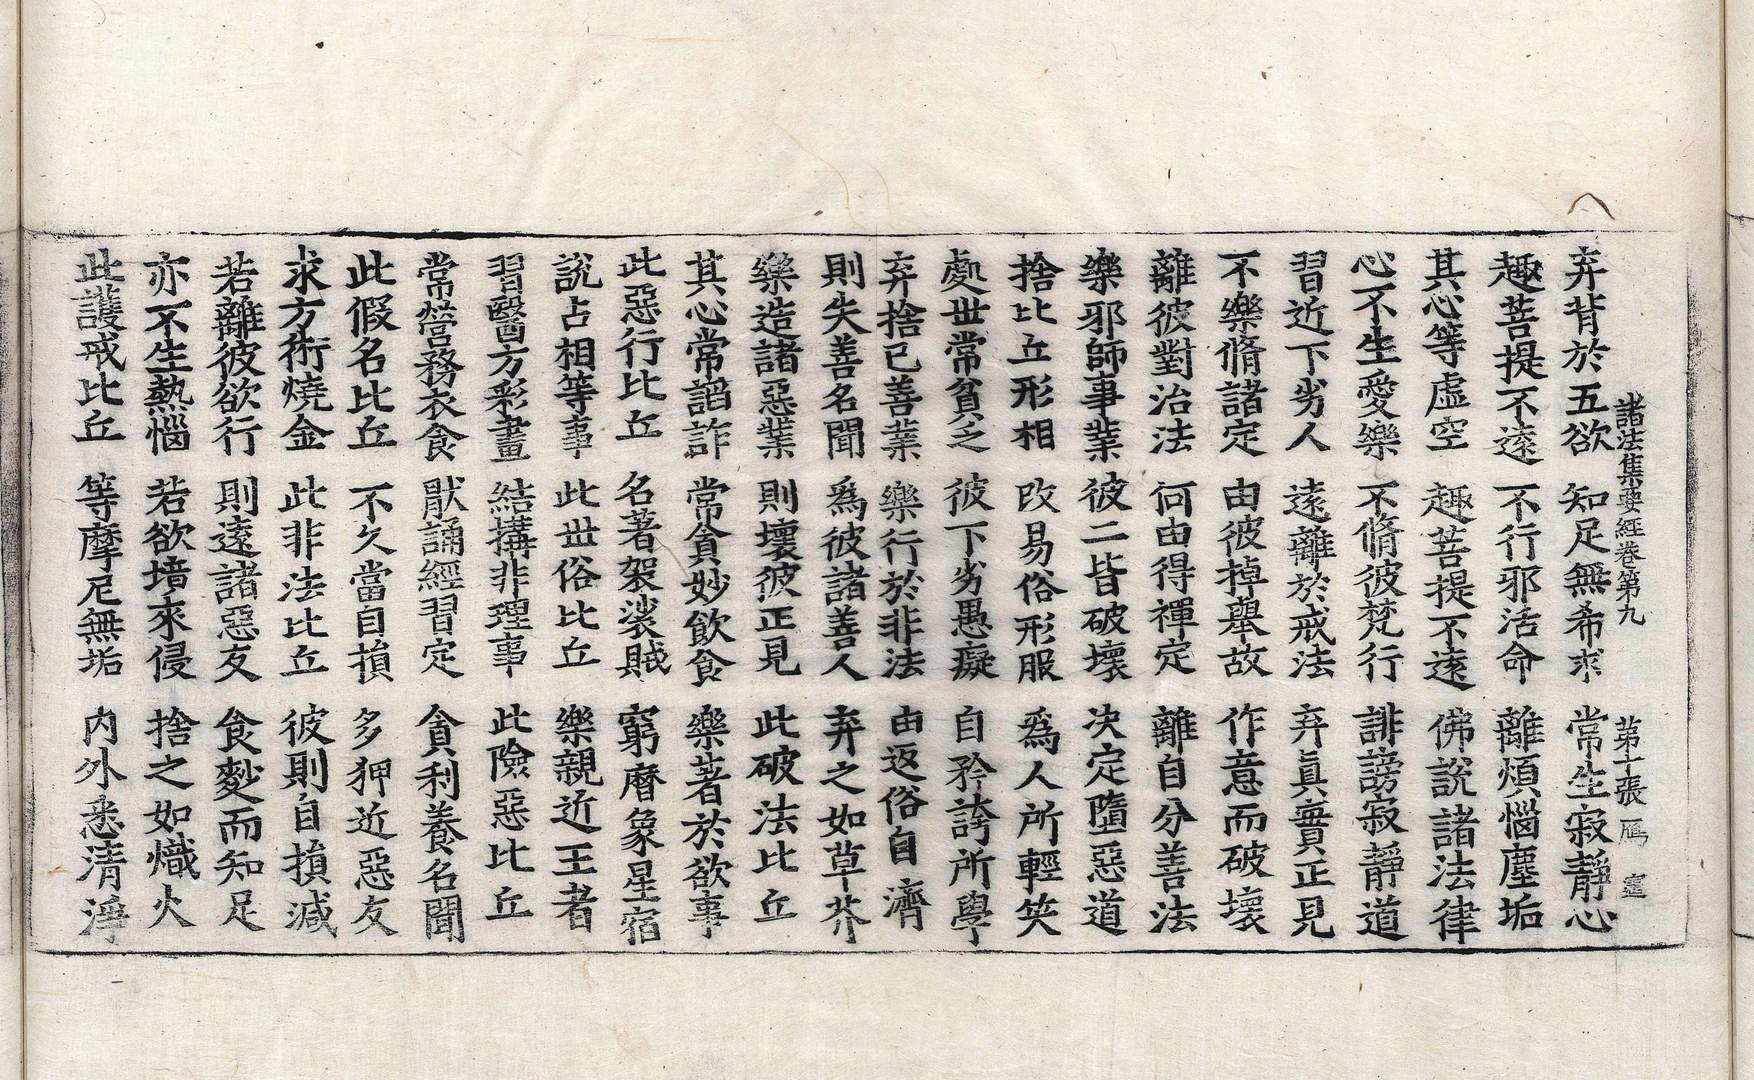 諸法集要經卷第九　第十張　鴈　㝎
弃背於五欲　知足無希求　常生寂靜心
趣菩提不遠　不行邪活命　離煩惱塵垢
其心等虛空　趣菩提不遠　佛說諸法律
心不生愛樂　不脩彼梵行　誹謗寂靜道
習近下劣人　遠離於戒法　弃真實正見
不樂脩諸定　由彼掉舉故　作意而破壞
離彼對治法　何由得禪定　離自分善法
樂邪師事業　彼二皆破壞　決定墮惡道
捨比丘形相　改易俗形服　爲人所輕笑
處世常貧乏　彼下劣愚癡　自矜誇所學
弃捨已善業　樂行於非法　由返俗自濟
則失善名聞　爲彼諸善人　弃之如草芥
樂造諸惡業　則壞彼正見　此破法比丘
其心常謟詐　常貪妙飲食　樂著於欲事
此惡行比丘　名著袈裟賊　窮曆象星宿
說占相等事　此世俗比丘　樂親近王者
習醫方彩畫　結搆非理事　此險惡比丘
常營務衣食　猒誦經習定　貪利養名聞
此假名比丘　不久當自損　多狎近惡友
求方術燒金　此非法比丘　彼則自損減
若離彼欲行　則遠諸惡友　食麨而知足
亦不生熱惱　若欲境來侵　捨之如熾火
此護戒比丘　等摩尼無垢　內外悉清淨